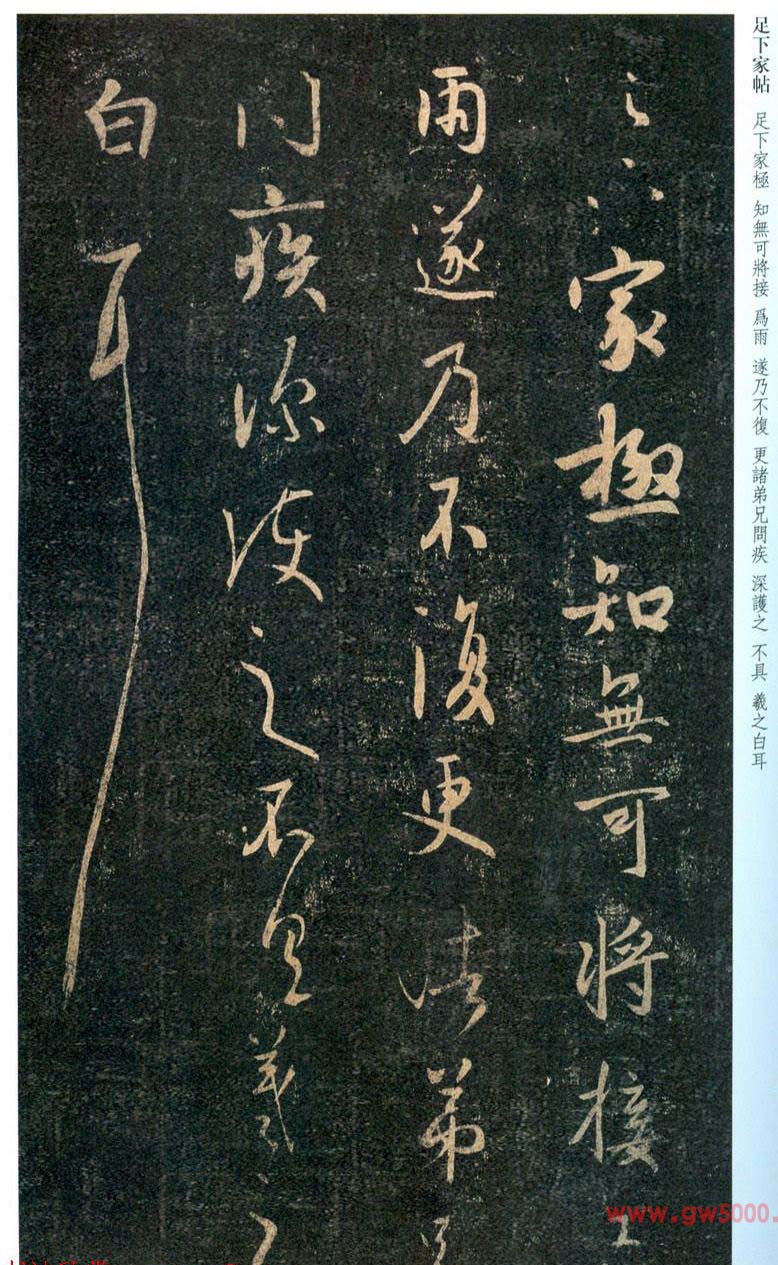 足下家帖 足下家極 知無可將接 爲雨 遂乃不復 更諸弟兄問疾 深護之 不具 羲之白耳
足下家極知無可將接爲
雨遂乃不復更諸弟兄
問疾深護之不具羲之
白耳
www.gw5000.